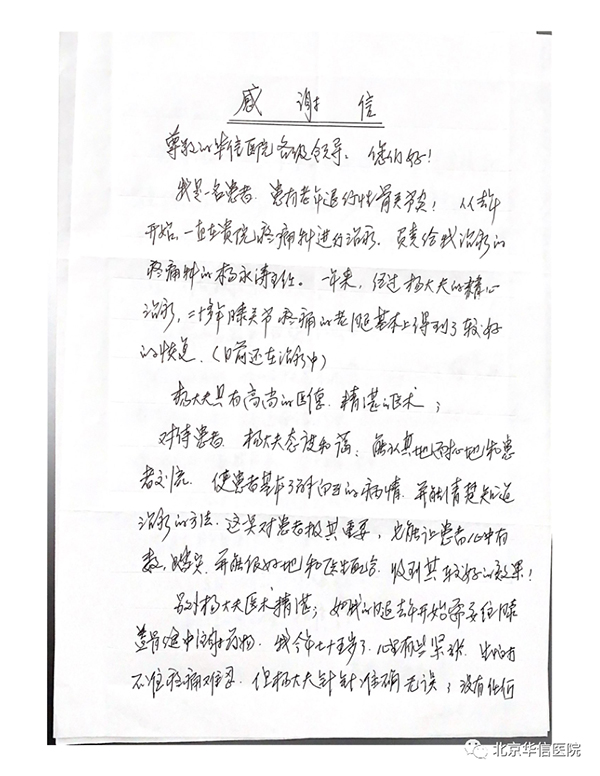 感谢信
尊敬的华信医院各级领导、您们好!
我是一名患者,患有老年退行性骨关节炎!从去年
开始一直在贵院疼痛科进行治疗。负责给我治疗的
疼痛科的杨永涛主任。一年来,经过杨大夫的精心
治疗,二十多年膝关节疼痛的老腿基本上得到了较好
的恢复。(目前还在治疗中)
杨大夫具有高尚的医德、精湛医术;
对待患者 杨大夫态度和蔼、能认真地还耐心地和患
者交流。使患者基本了解自己的病情,并能清楚知道
治疗的方法。这是对患者极其重要,也能让患者心中有
数,踏实 并能很好地和医生配合,收到其较好的效果!
另外杨大夫医术精湛;如我的腿去年开始需要往膝
盖骨缝中注射药物,我今年七十五岁了,心里有些紧张,
不住疼痛难忍。但杨大夫针针准确无误;没有任何
北京华信医院